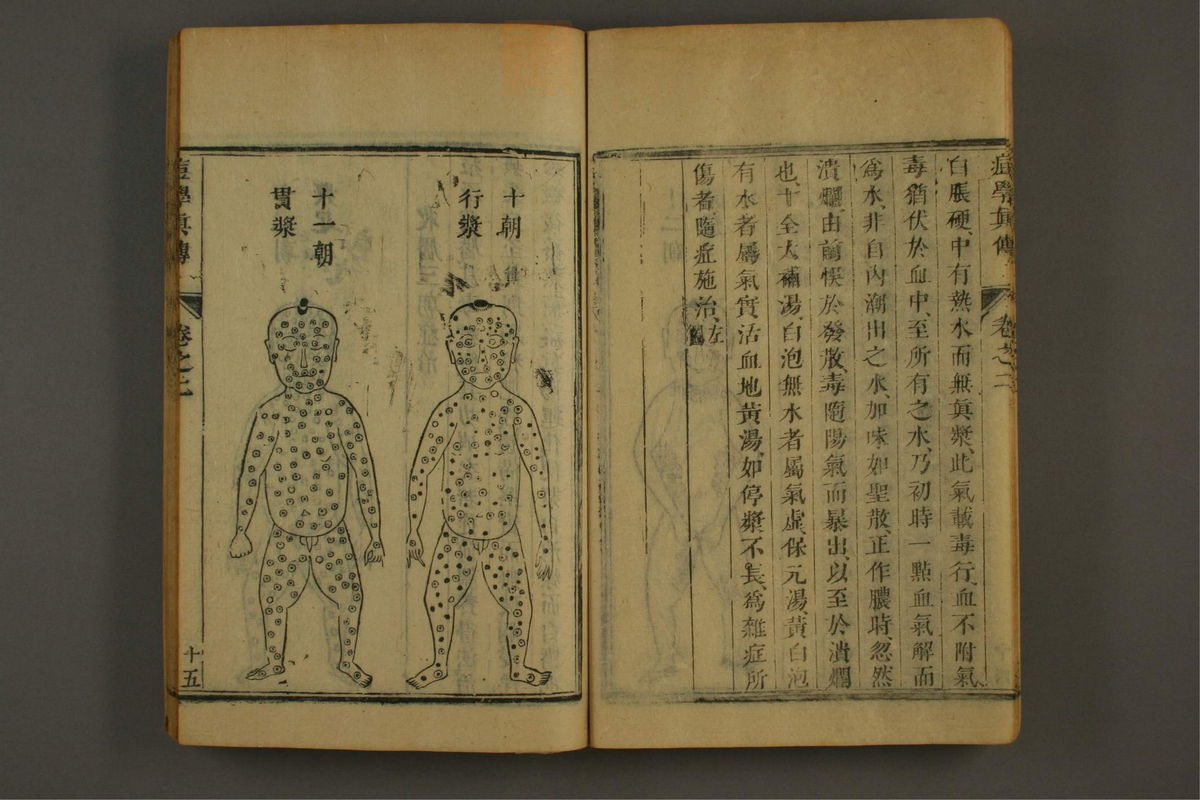 痘學眞傳 卷之二
白脹硬、中有熱水而無眞漿、此氣載毒行、血不附氣
毒猶伏於血中、至所有之水、乃初時一點血氣解而
爲水、非自內潮出之水、加味如聖散、正作膿時、忽然
潰爛、由前悞於發散、毒隨陽氣而暴出、以至於潰爛
也、十全大補湯、白泡無水者屬氣虛、保元湯、黃白泡
有水者屬氣實、活血地黃湯、如停漿不長、爲雜症所
傷者、隨症施治、左圖
十朝
行漿
十一朝
貫漿
痘學眞傳 卷之二 十五